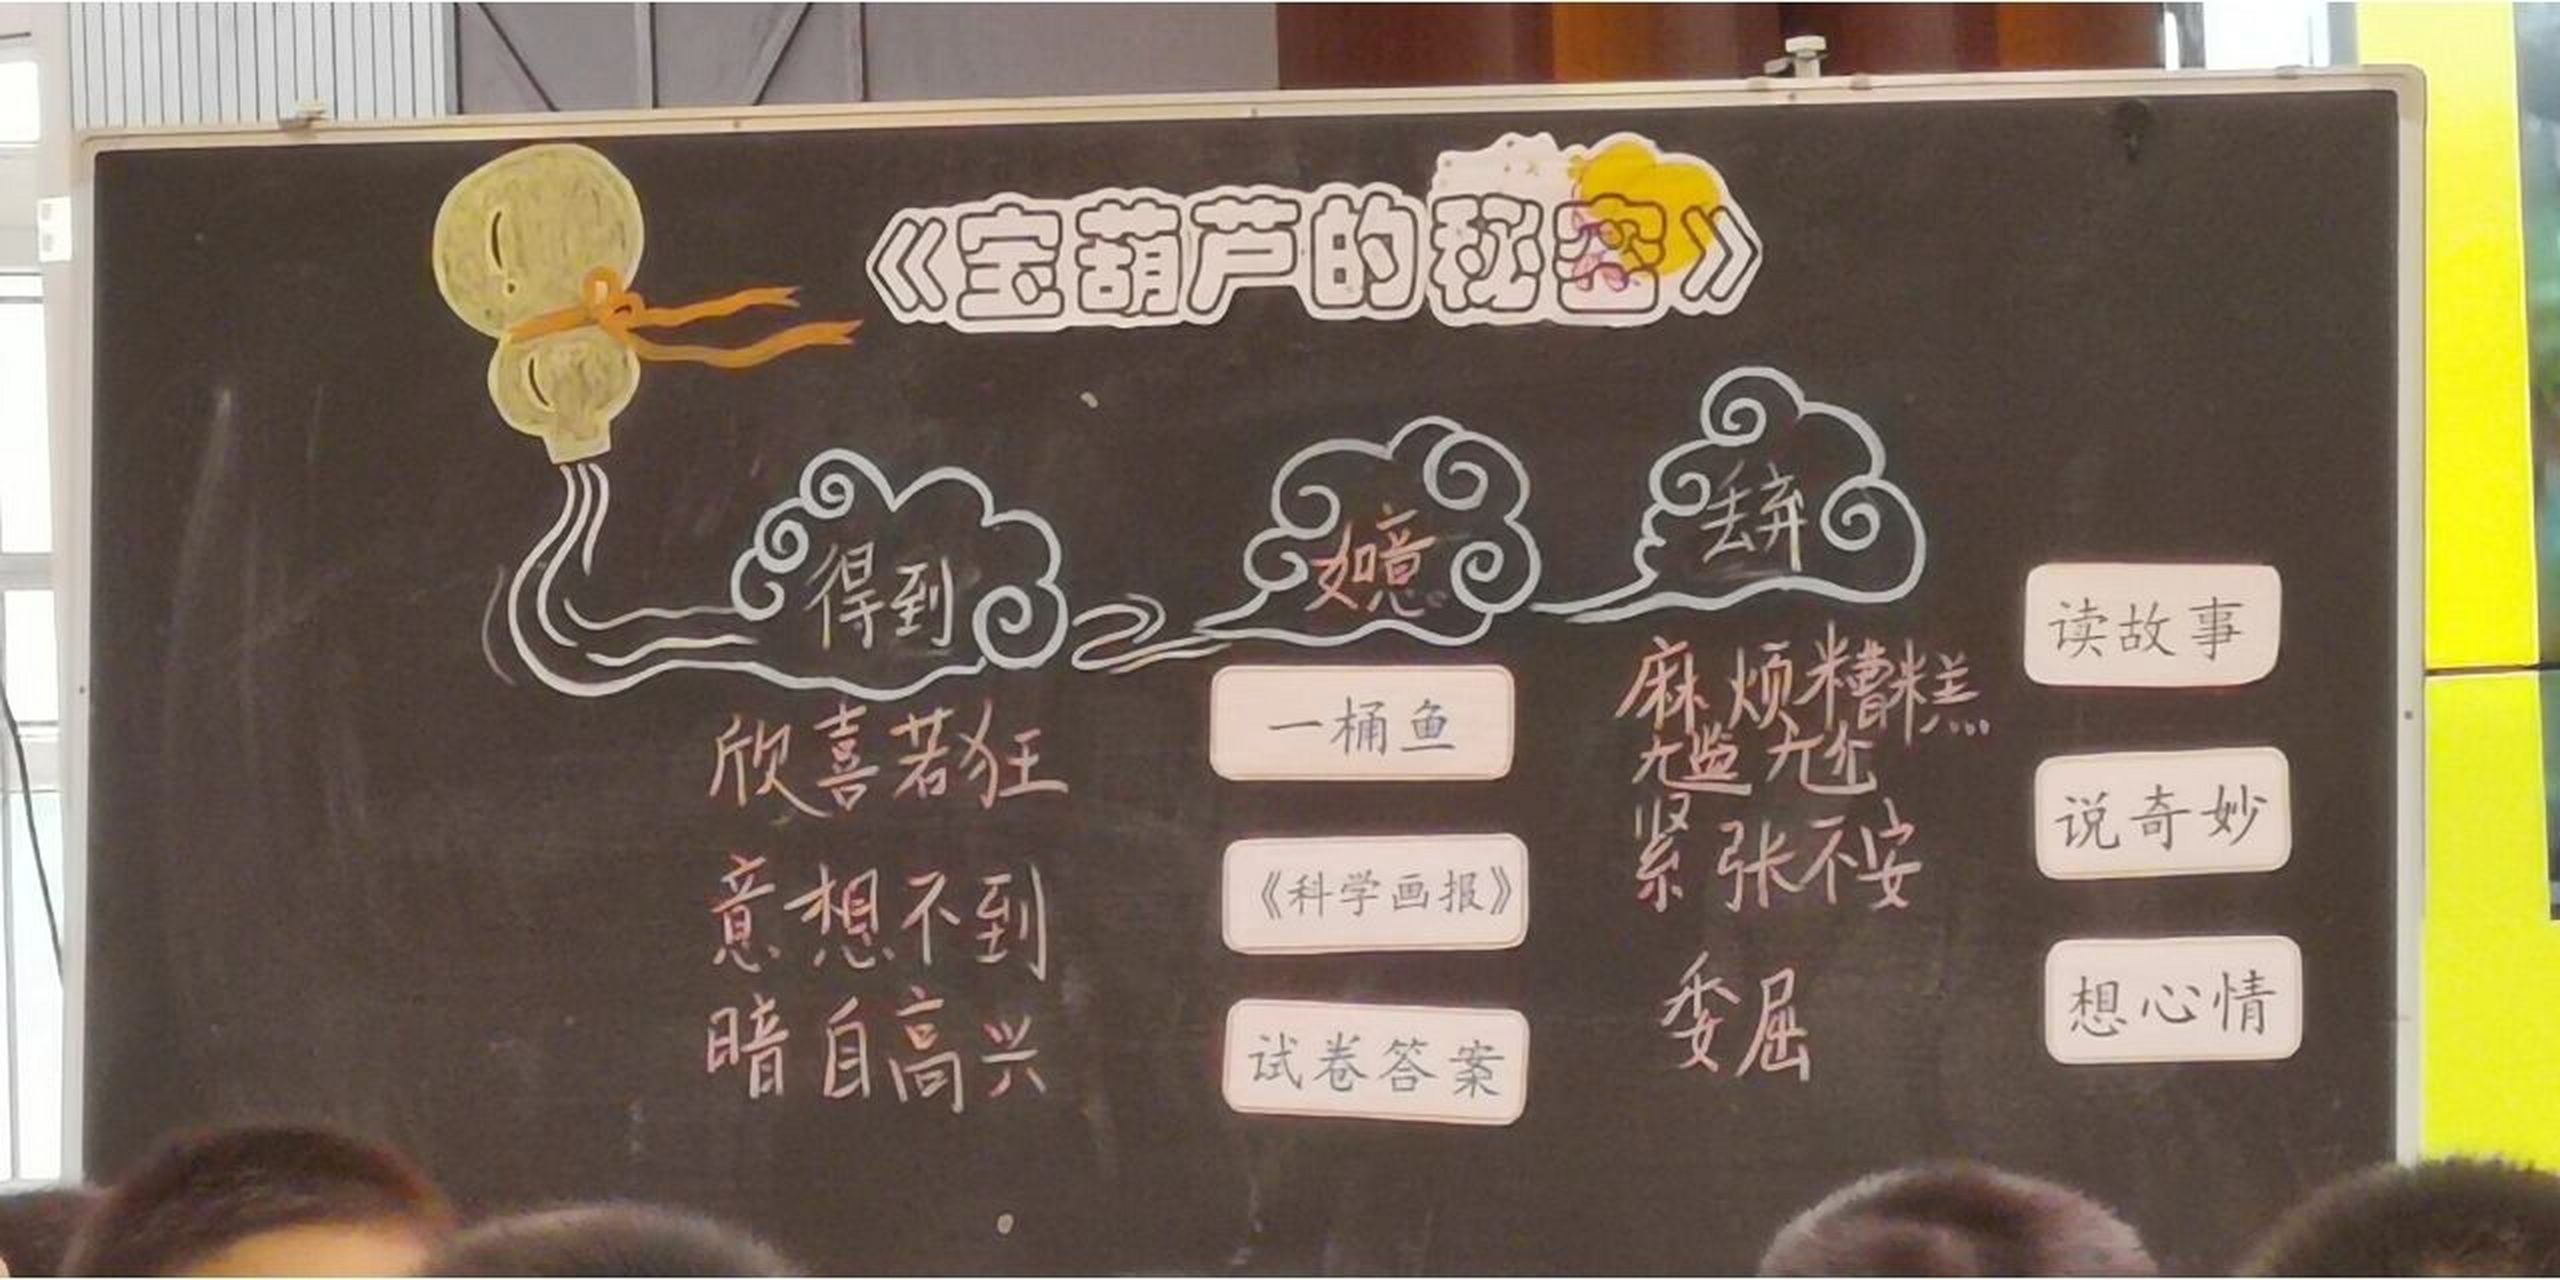 《宝葫芦的秘密》
得到
如意
丢弃
欣喜若狂
意想不到
暗自高兴
一桶鱼
《科学画报》
试卷答案
麻烦糟糕...
尴尬
紧张不安
委屈
读故事
说奇妙
想心情